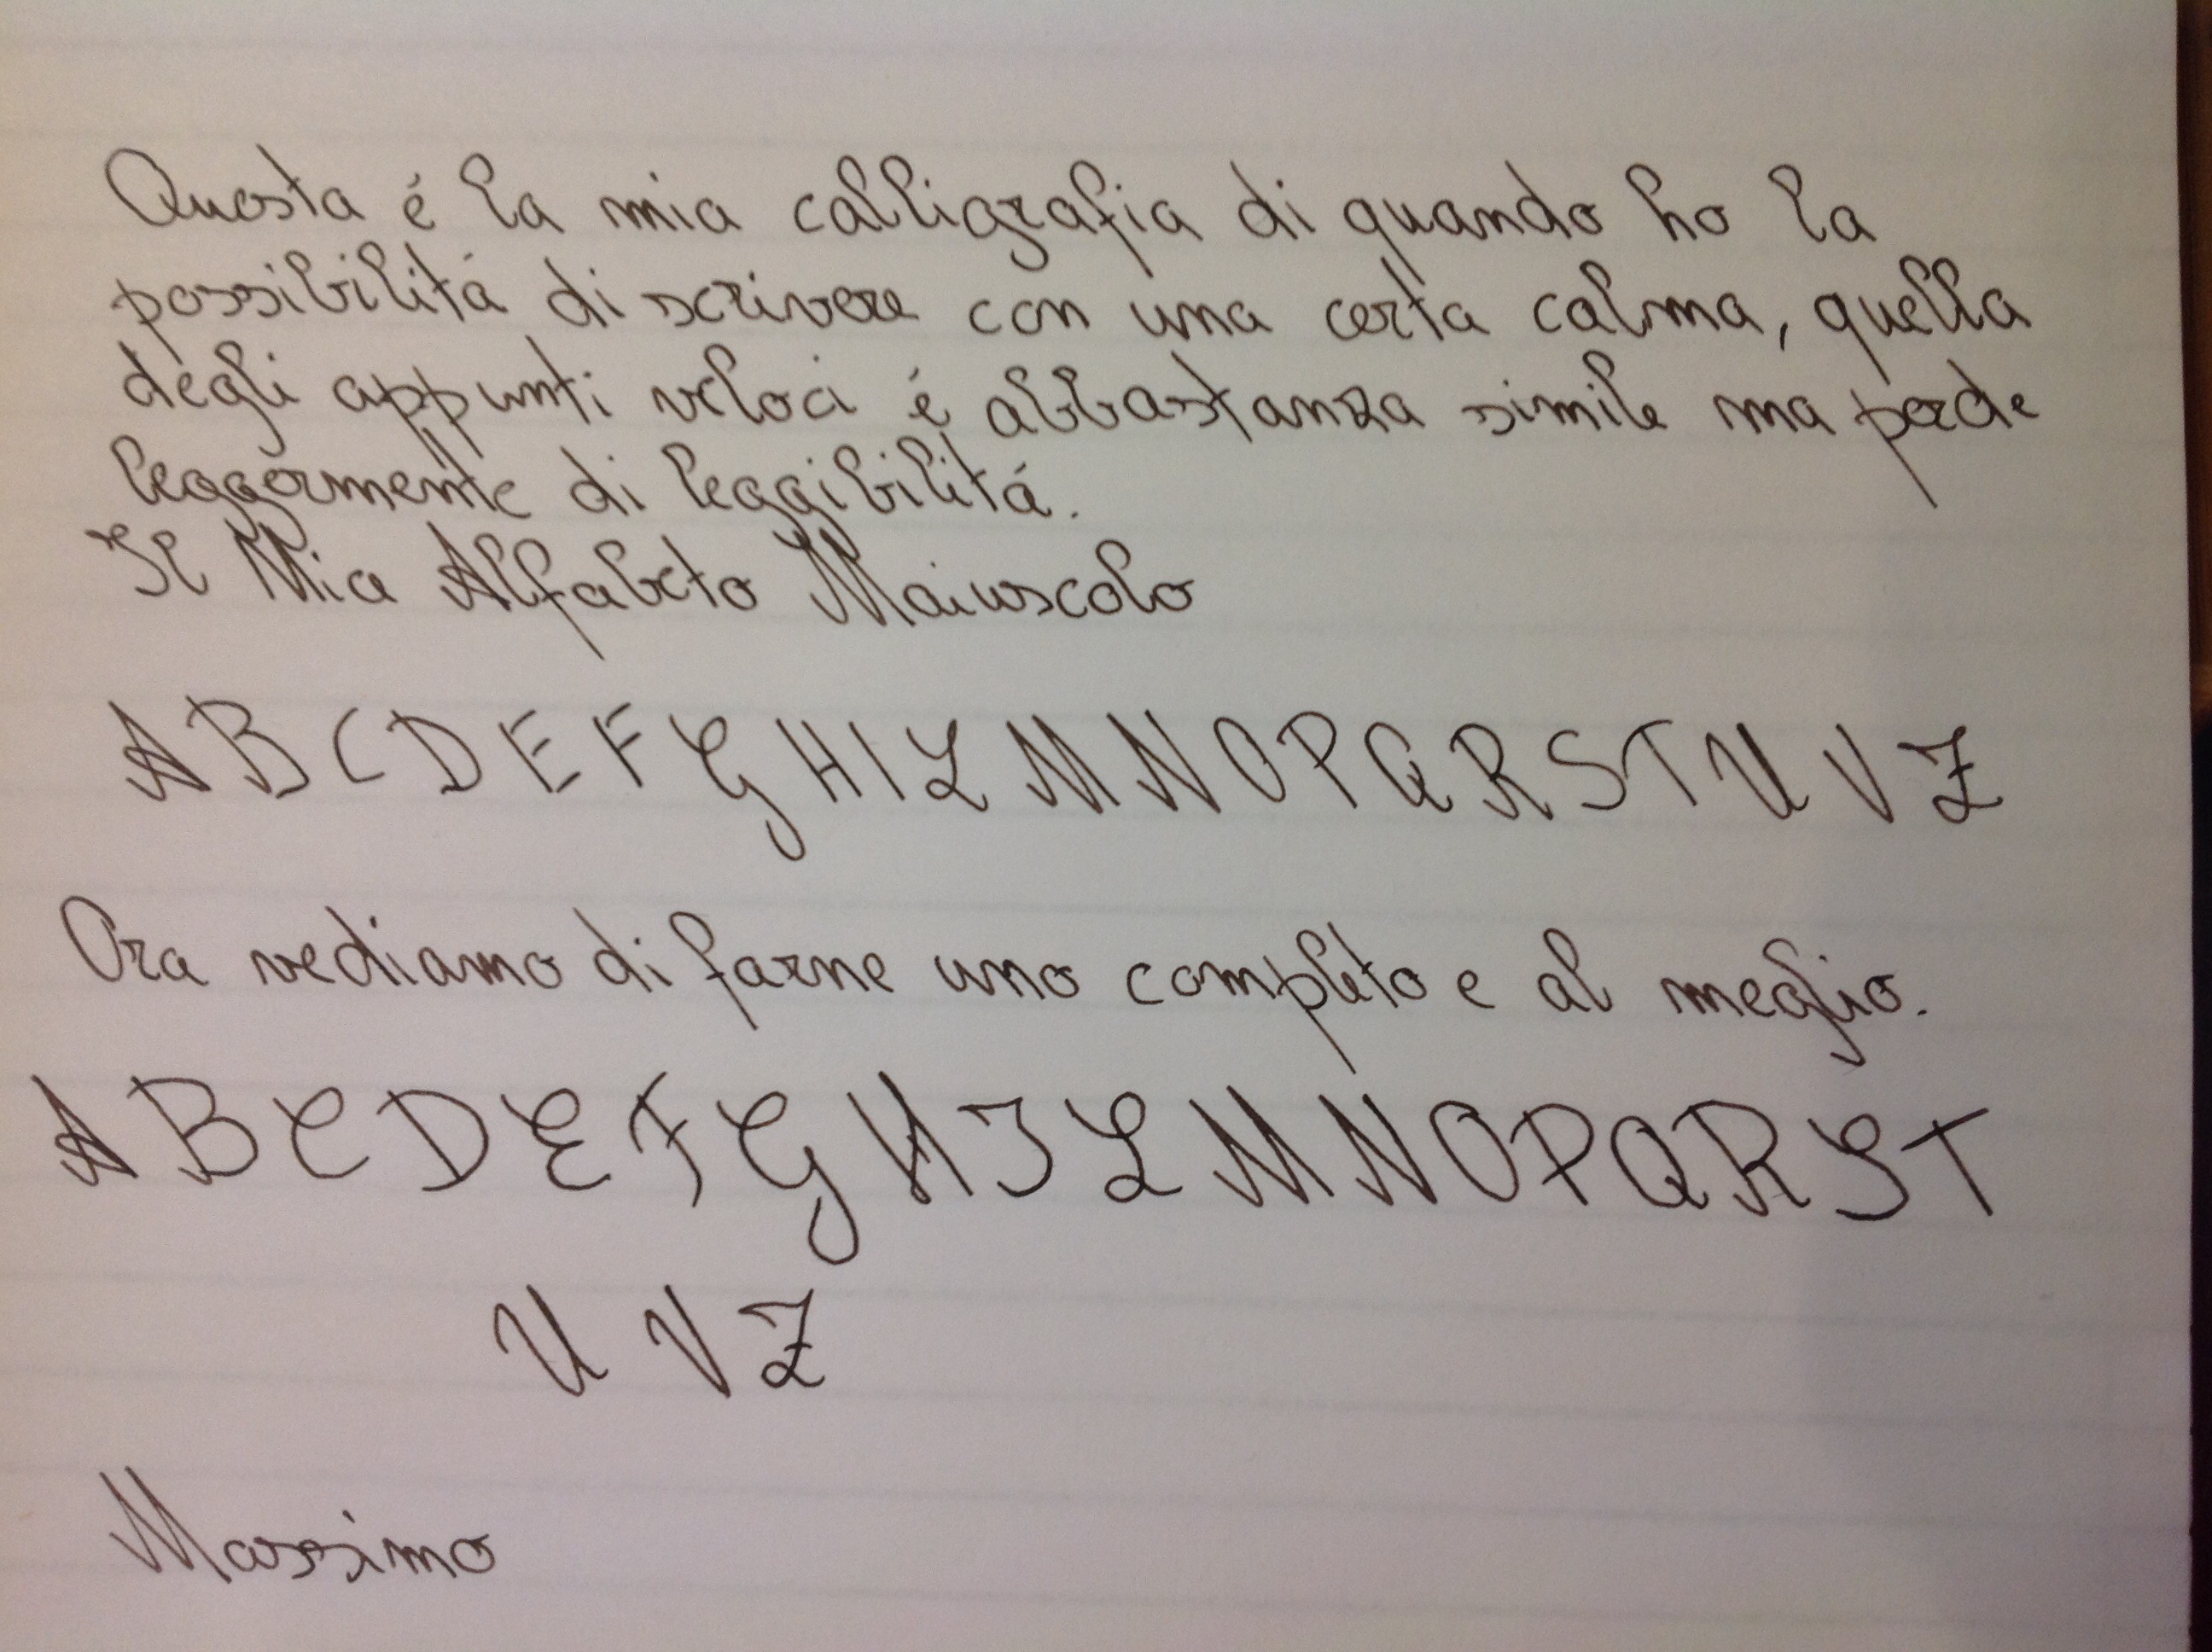 Questa é la mia calligrafia di quando ho la
possibilitá di scrivere con una certa calma, quella
degli appunti veloci é abbastanza simile ma perde
leggermente di leggibilitá.
Il Mia Alfabeto Maiuscolo
A B C D E F G H I L M N O P Q R S T U V Z
Ora vediamo di farne uno completo e al meglio.
A B C D E F G H I L M N O P Q R S T
U V Z
Massimo